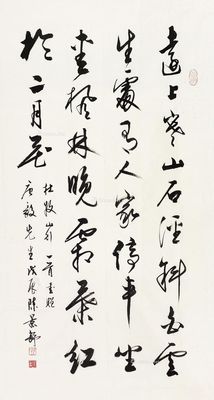 遠上寒山石徑斜白雲
生處有人家停車坐
愛楓林晚霜葉紅
於二月花
杜牧山行一首
先生戊辰陳景舒